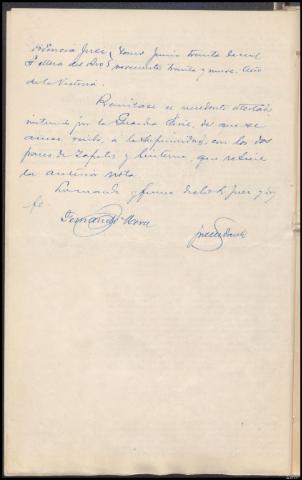 Providencia Juez } Lomo Junio treinta de mil
S. Mora del Rio } novecientos treinta y nueve. Año
de la Victoria.
Remítase el precedente atestado
instruido por la Guardia Civil, de que se
acusa recibo, a la Superioridad, con los dos
pares de zapatos y linterna, que refiere
la anterior nota.
Lo manda y firma dicho Sr. Juez y doy
fe
Fernando Mora